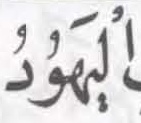 الْيَهُودُ